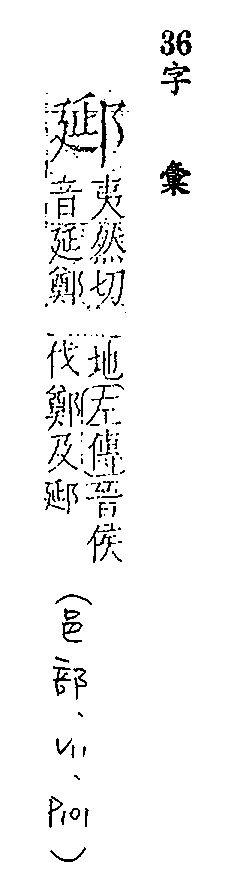 36字彙
郔
夷然切
音延鄭
地（左傳）晉侯
伐鄭及郔
（邑部、V11、P101）